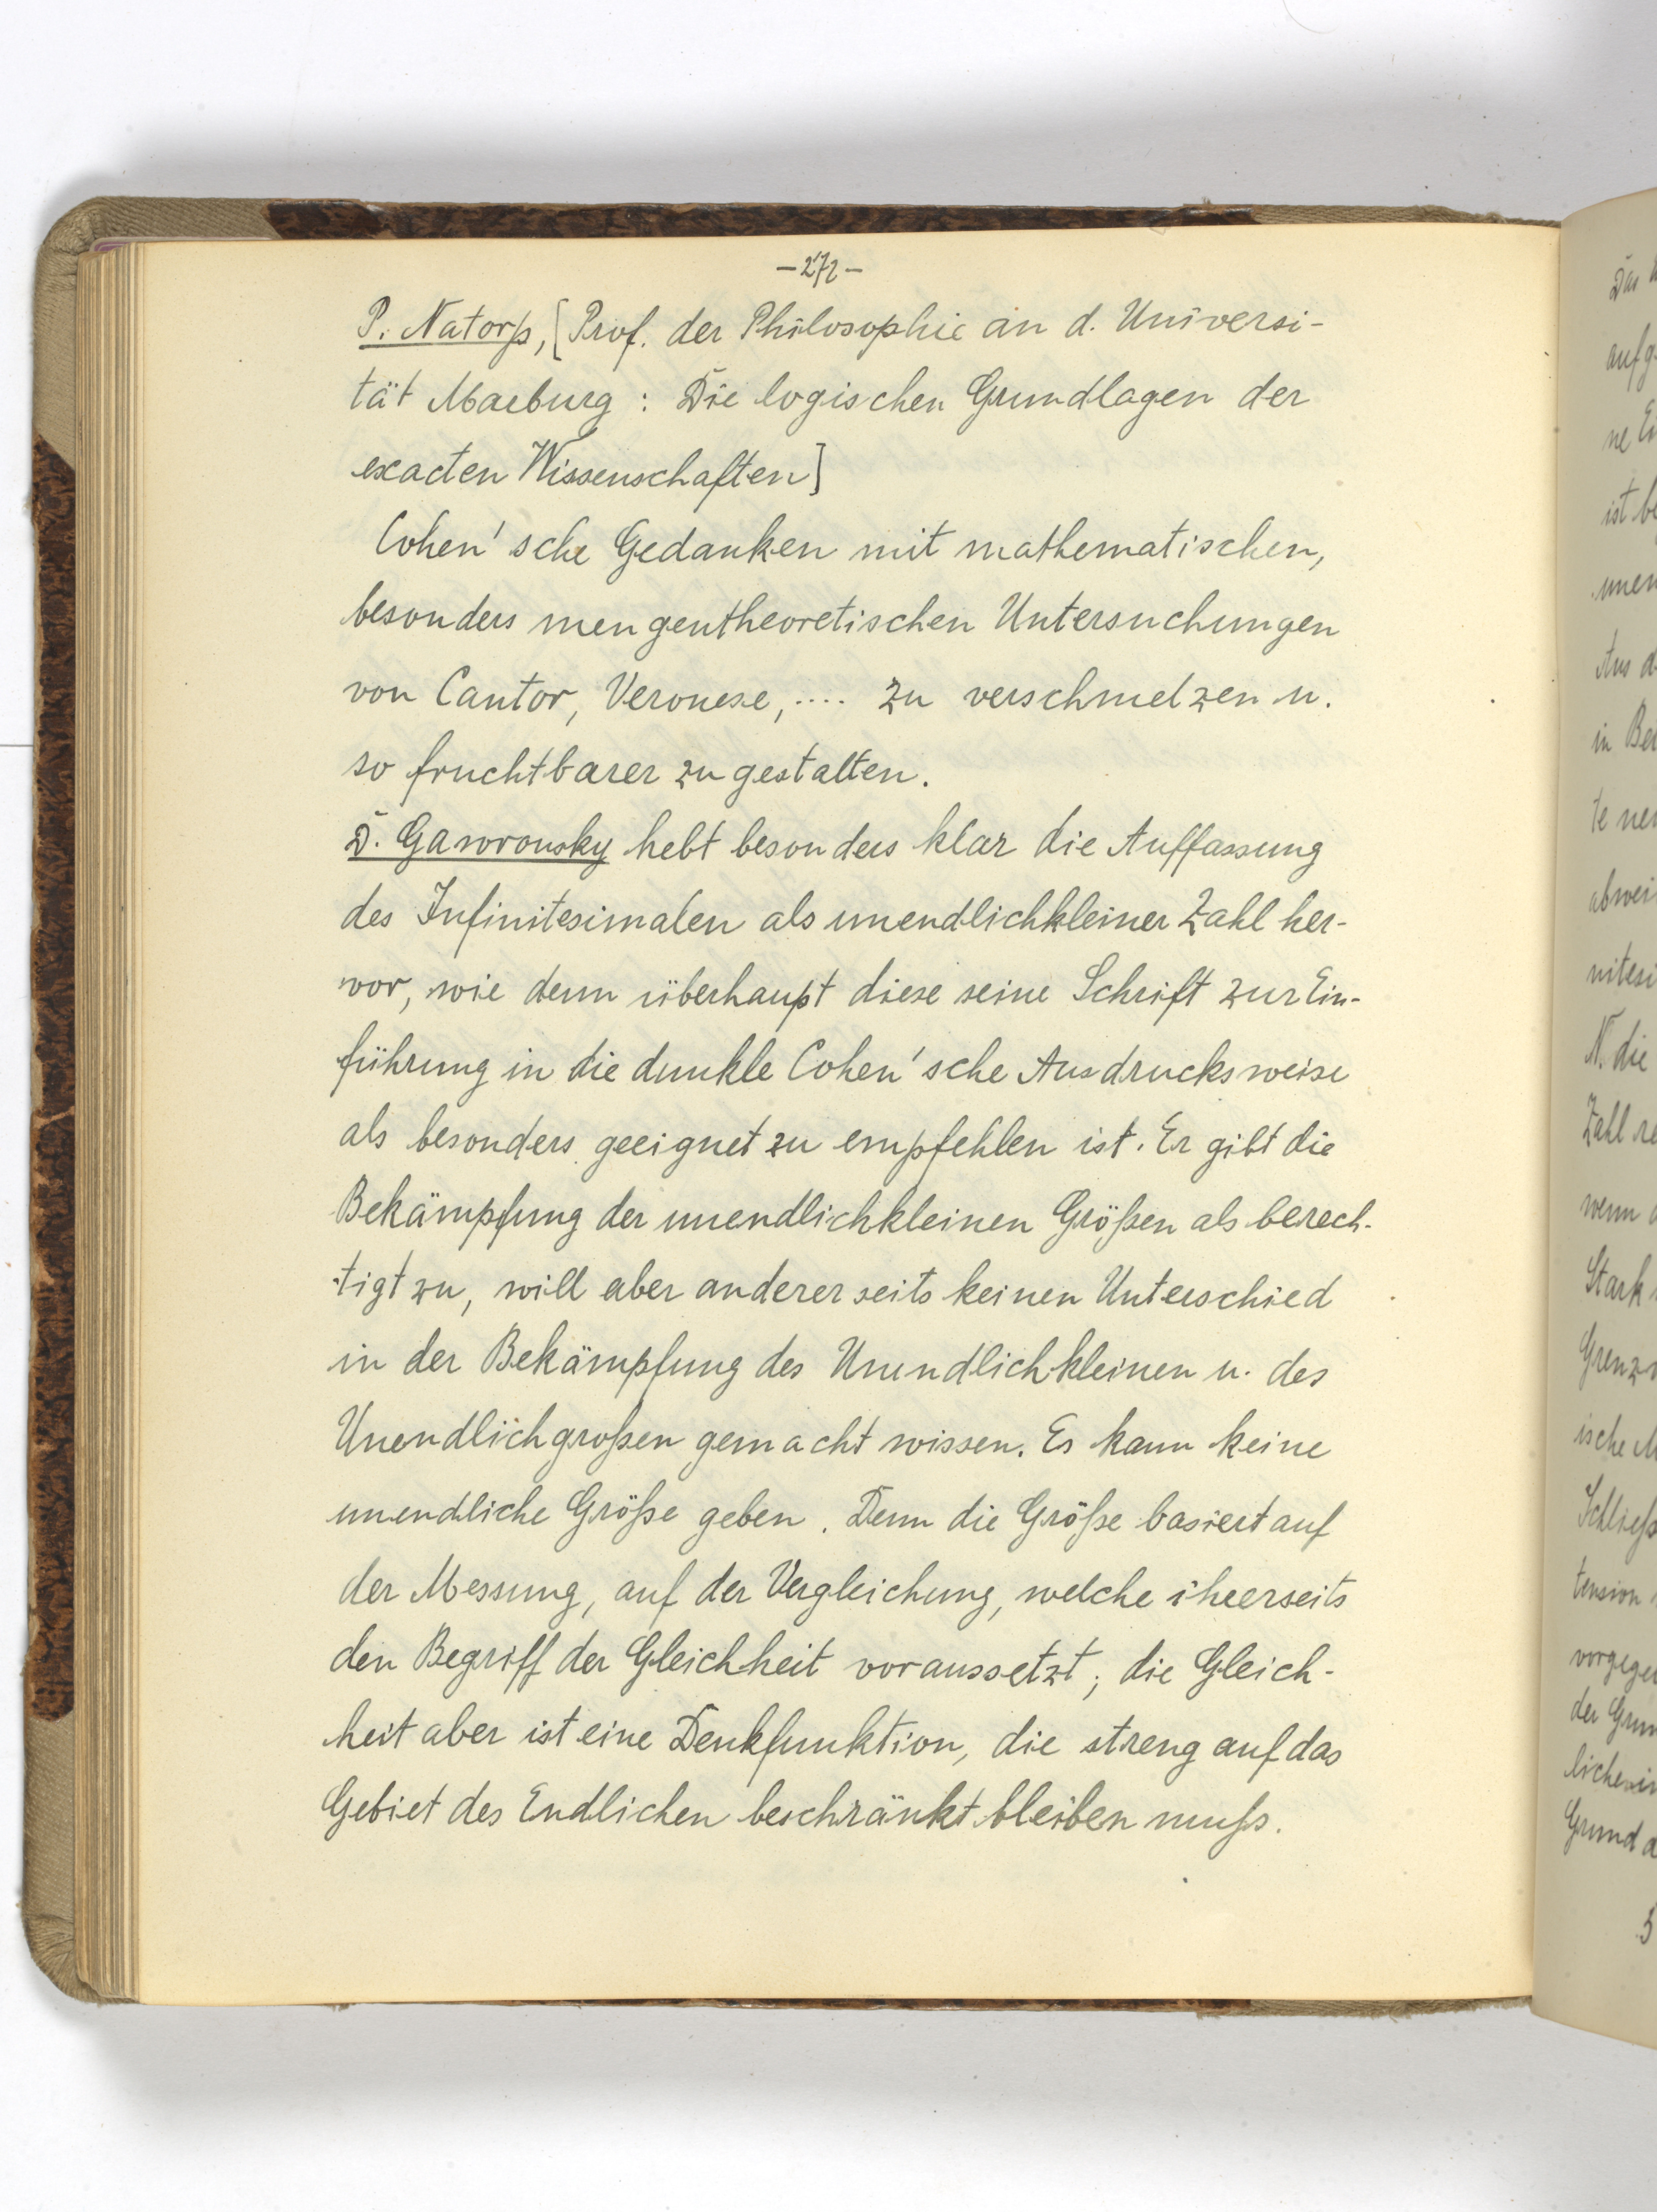 - 272 -
P. Natorp, [Prof. der Philosophie an d. Universi-
tät Marburg : Die logischen Grundlagen der
exacten Wissenschaften]
Cohen'sche Gedanken mit mathematischen,
besonders mengentheoretischen Untersuchungen
von Cantor, Veronese, .... zu verschmelzen u.
so fruchtbarer zu gestalten.
D. Gawronsky hebt besonders klar die Auffassung
des Infinitesimalen als unendlichkleiner Zahl her-
vor, wie denn überhaupt diese seine Schrift zur Ein-
führung in die dunkle Cohen'sche Ausdrucksweise
als besonders geeignet zu empfehlen ist. Er gibt die
Bekämpfung der unendlichkleinen Größen als berech-
tigt zu, will aber andererseits keinen Unterschied
in der Bekämpfung des Unendlichkleinen u. des
Unendlichgroßen gemacht wissen. Es kann keine
unendliche Größe geben. Denn die Größe basiert auf
der Messung, auf der Vergleichung, welche ihrerseits
den Begriff der Gleichheit voraussetzt; die Gleich-
heit aber ist eine Denkfunktion, die streng auf das
Gebiet des Endlichen beschränkt bleiben muß.